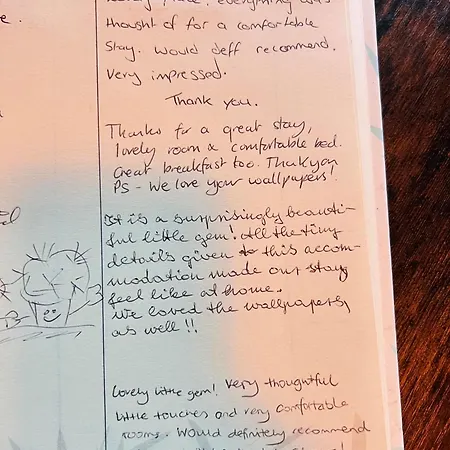 place. everything was
thought of for a comfortable
stay. Would deff recommend.
Very impressed.
Thank you.
Thanks for a great stay,
lovely room & comfortable bed.
Great breakfast too. Thank you
PS - We love your wallpapers!
It is a surprisingly beauti-
ful little gem! All the tiny
details given to this accom-
modation made our stay
feel like at home.
We loved the wallpapers
as well !!
Lovely little gem! Very thoughtful
little touches and very comfortable
rooms. Would definitely recommend